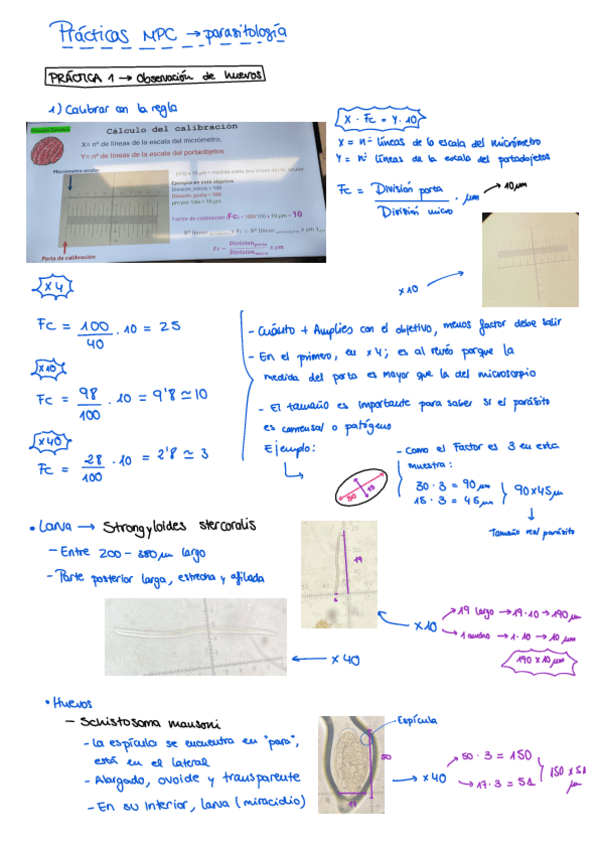 Prácticas MPC → parasitología
PRÁCTICA 1 → Observación de huevos
1) Calibrar con la regla
Cálculo del calibración
X= nº de líneas de la escala del micrómetro.
Y= nº de líneas de la escala del portaobjetos
Micrómetro ocular
Ejemplo en este objetivo
División micro = 100
División porta = 100
µm por raya = 10 µm
Factor de calibración (Fc) = 100/100 x 10 µm = 10
Porta de calibración
X · Fc = Y · 10
X = nº líneas de la escala del micrómetro
Y = nº líneas de la escala del portaobjetos
Fc = División porta / División micro · µm → 10 µm
x10
x4
Fc = 100 / 40 · 10 = 25
x10
Fc = 98 / 100 · 10 = 9'8 ≃ 10
x40
Fc = 28 / 100 · 10 = 2'8 ≃ 3
- Cuánto + Amplies con el objetivo, menos factor debe salir
- En el primero, en x4; es al revés porque la
medida del porta es mayor que la del microscopio
- El tamaño es importante para saber si el parásito
es comensal o patógeno
Ejemplo:
30
15
- Como el Factor es 3 en esta
muestra:
30 · 3 = 90 µm
15 · 3 = 45 µm
90x45 µm
Tamaño real parásito
• Larva → Strongyloides stercoralis
- Entre 200 - 380 µm largo
- Parte posterior larga, estrecha y afilada
19
x10
19 largo → 19·10 → 190 µm
1 ancho → 1·10 → 10 µm
190 x 10 µm
x40
• Huevos
- Schistosoma mansoni
- La espícula se encuentra en "para",
está en el lateral
- Alargado, ovoide y transparente
- En su interior, larva (miracidio)
Espícula
50
17
x40
50 · 3 = 150
17 · 3 = 51
150 x 51
µm